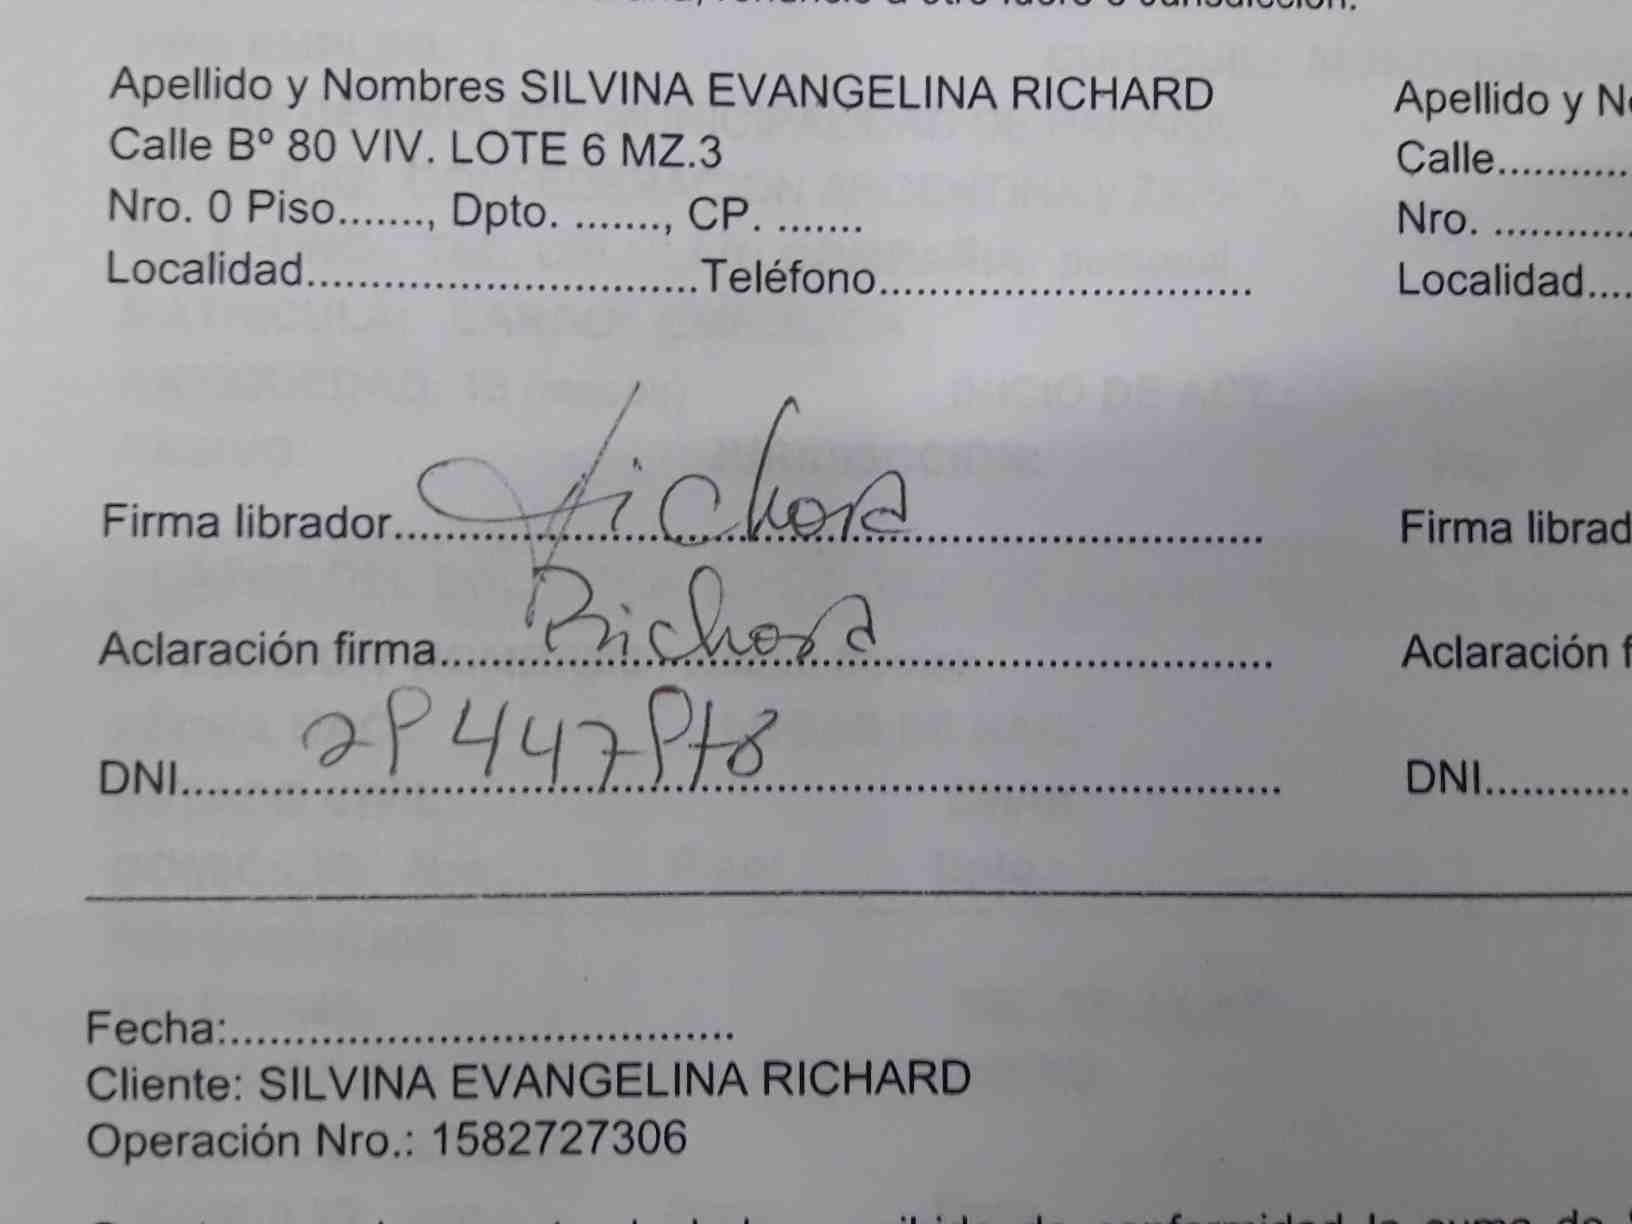 renuncio a otro fuero o Jurisdicción.
Apellido y Nombres SILVINA EVANGELINA RICHARD
Calle Bº 80 VIV. LOTE 6 MZ.3
Nro. 0 Piso......., Dpto. ......., CP. .......
Localidad..............................Teléfono.............................
Apellido y
Calle...........
Nro. ...........
Localidad....
Firma librador.................................................................
Richard
Aclaración firma................................................................
Richard
DNI....................................................................................
Firma
Aclaración
DNI............
Fecha:.......................................
Cliente: SILVINA EVANGELINA RICHARD
Operación Nro.: 1582727306
de conformidad la suma de